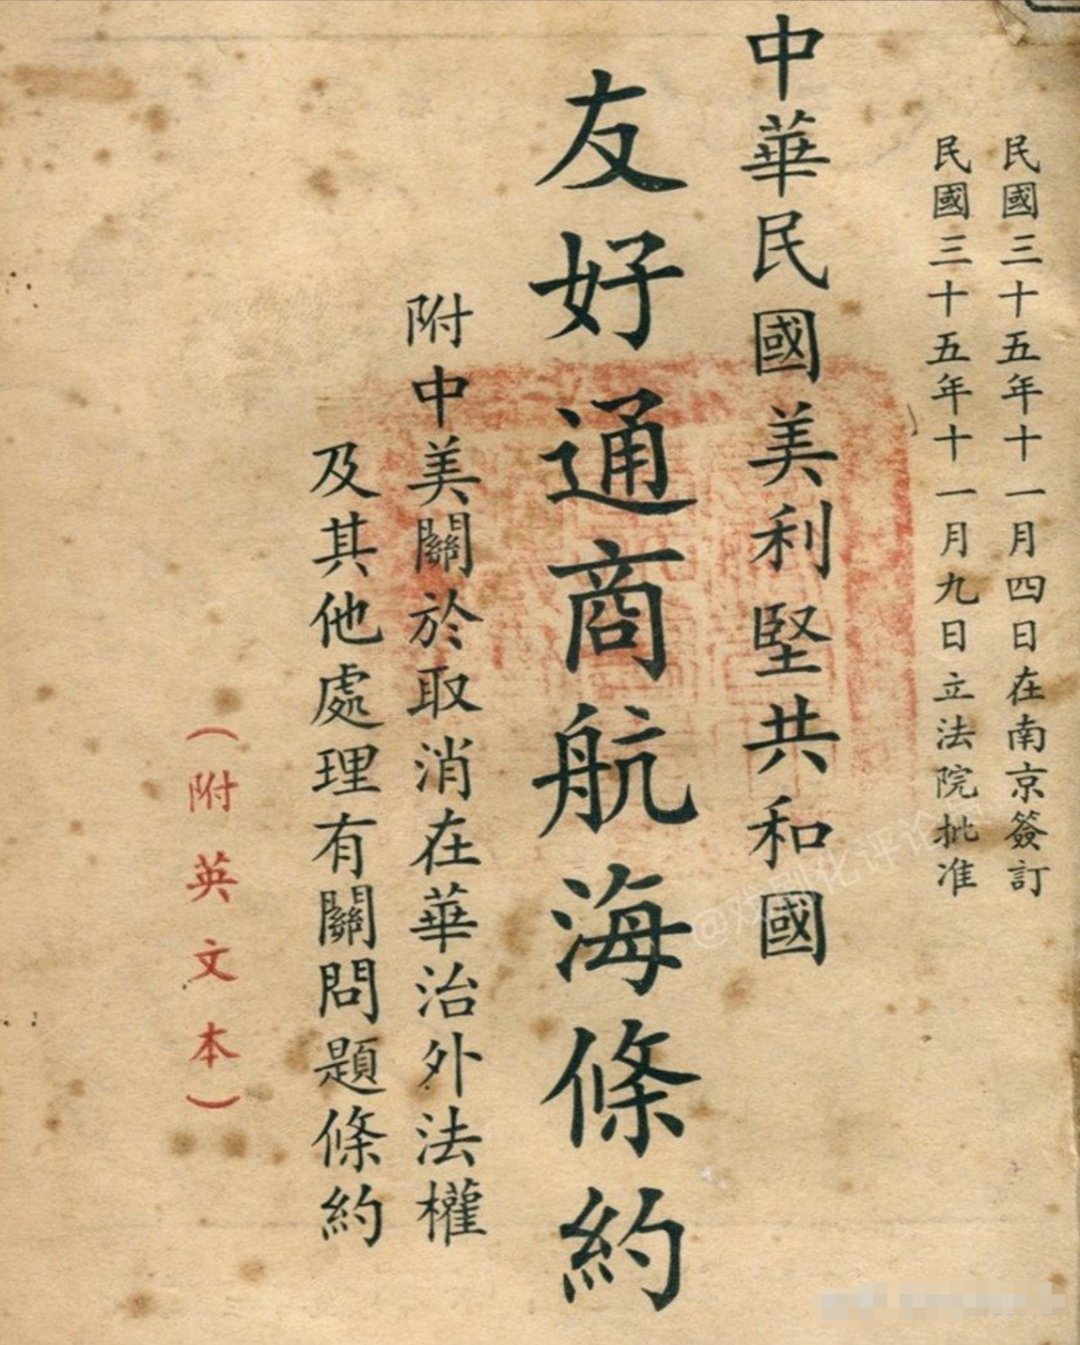 民國三十五年十一月四日在南京簽訂
民國三十五年十一月九日立法院批准
中華民國美利堅共和國
友好通商航海條約
附中美關於取消在華治外法權
及其他處理有關問題條約
(附英文本)
@戏剧化评论